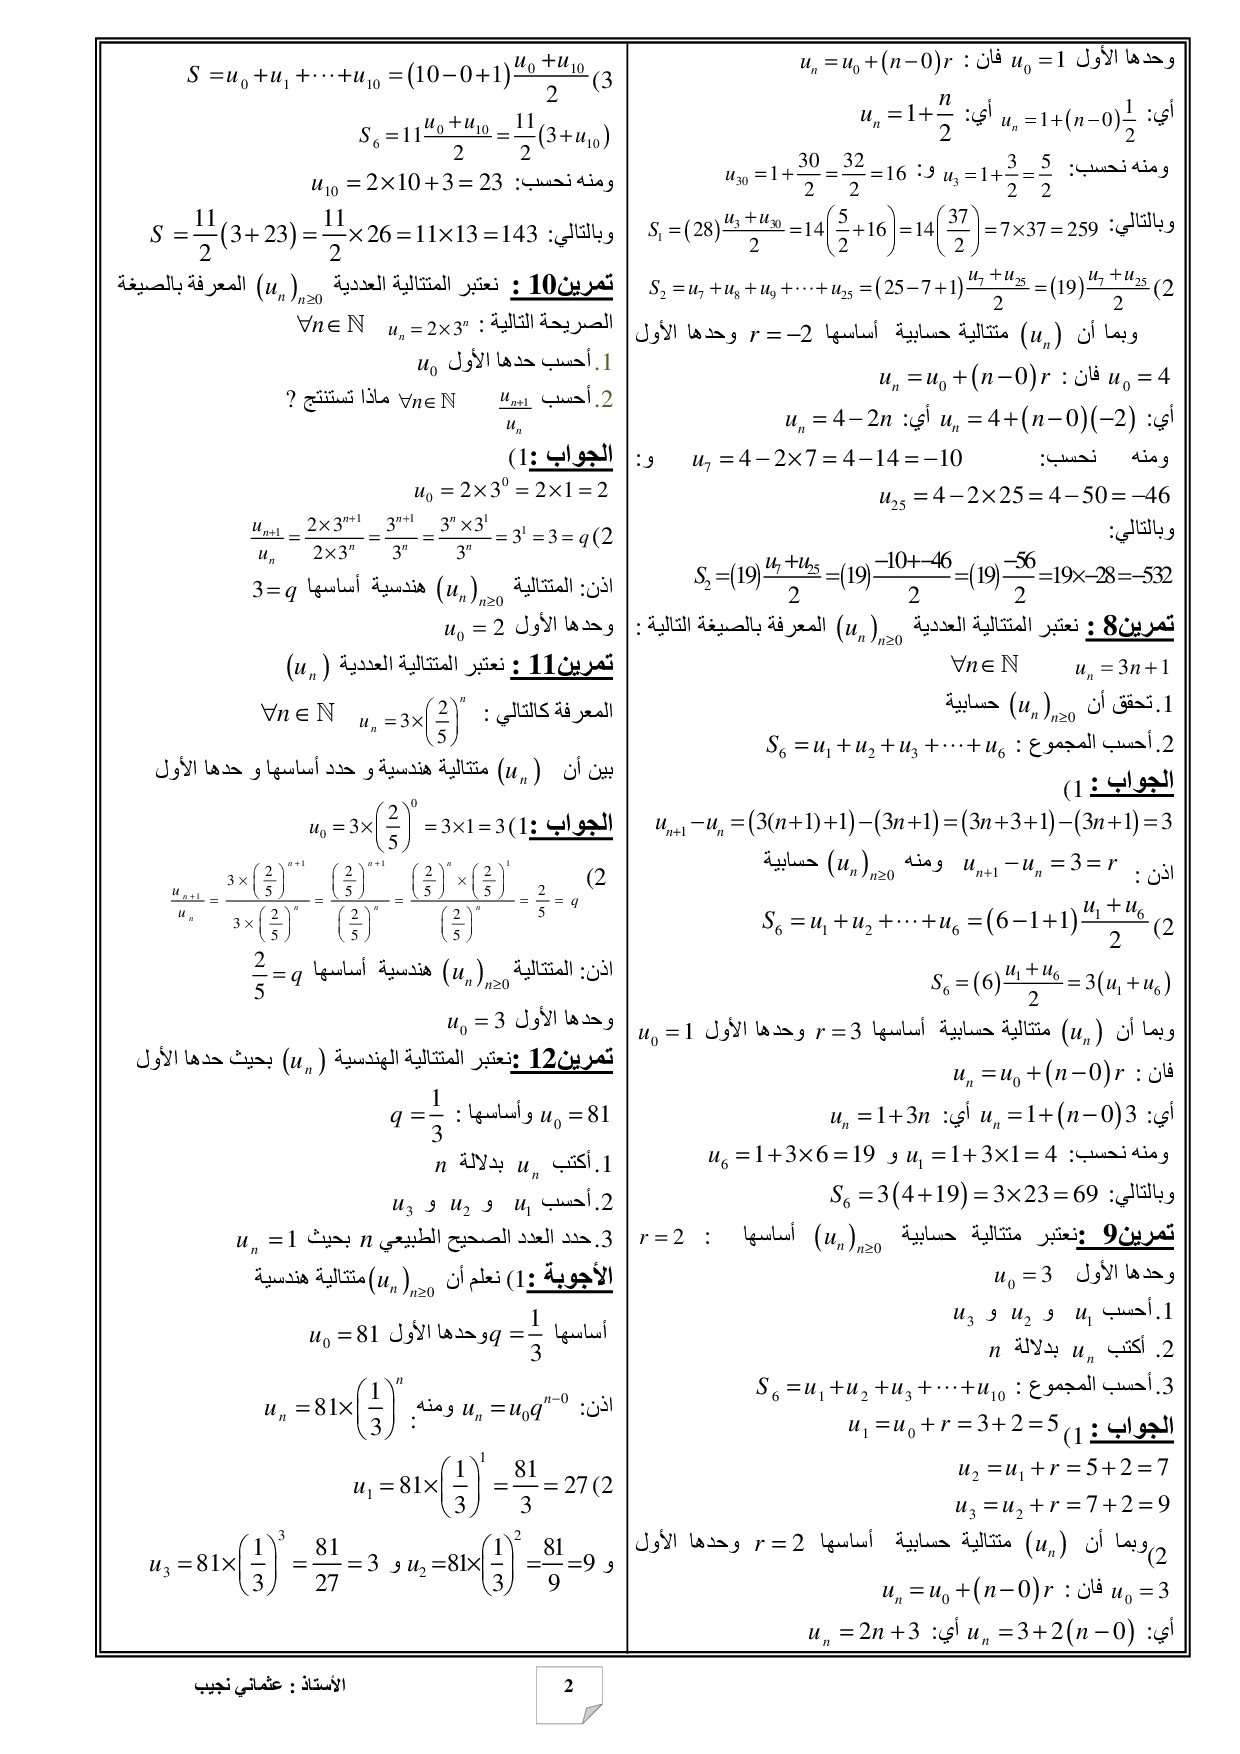 وحدها الأول u₀ = 1 فان : uₙ = u₀ + (n − 0) r
أي: uₙ = 1 + (n − 0) 1/2 أي: uₙ = 1 + n/2
ومنه نحسب: u₃ = 1 + 3/2 = 5/2 و: u₃₀ = 1 + 30/2 = 32/2 = 16
وبالتالي: S₁ = (28) (u₃ + u₃₀)/2 = 14(5/2 + 16) = 14(37/2) = 7×37 = 259
2) S₂ = u₇ + u₈ + u₉ + ⋯ + u₂₅ = (25 − 7 + 1) (u₇ + u₂₅)/2 = (19) (u₇ + u₂₅)/2
وبما أن (uₙ) متتالية حسابية أساسها r = −2 وحدها الأول
u₀ = 4 فان : uₙ = u₀ + (n − 0) r
أي: uₙ = 4 + (n − 0)(−2) أي: uₙ = 4 − 2n
ومنه نحسب: u₇ = 4 − 2×7 = 4 − 14 = −10 و:
u₂₅ = 4 − 2×25 = 4 − 50 = −46
وبالتالي:
S₂ = (19) (u₇ + u₂₅)/2 = (19) (−10 + −46)/2 = (19) (−56)/2 = 19×−28 = −532
تمرين8 : نعتبر المتتالية العددية (uₙ)ₙ≥₀ المعرفة بالصيغة التالية :
uₙ = 3n + 1 ∀n ∈ ℕ
1. تحقق أن (uₙ)ₙ≥₀ حسابية
2. أحسب المجموع : S₆ = u₁ + u₂ + u₃ + ⋯ + u₆
الجواب : 1)
uₙ₊₁ − uₙ = (3(n+1)+1) − (3n+1) = (3n+3+1) − (3n+1) = 3
اذن : uₙ₊₁ − uₙ = 3 = r ومنه (uₙ)ₙ≥₀ حسابية
2) S₆ = u₁ + u₂ + ⋯ + u₆ = (6 − 1 + 1) (u₁ + u₆)/2
S₆ = (6) (u₁ + u₆)/2 = 3(u₁ + u₆)
وبما أن (uₙ) متتالية حسابية أساسها r = 3 وحدها الأول u₀ = 1
فان : uₙ = u₀ + (n − 0) r
أي: uₙ = 1 + (n − 0) 3 أي: uₙ = 1 + 3n
ومنه نحسب: u₁ = 1 + 3×1 = 4 و u₆ = 1 + 3×6 = 19
وبالتالي: S₆ = 3(4 + 19) = 3×23 = 69
تمرين9 :نعتبر متتالية حسابية (uₙ)ₙ≥₀ أساسها : r = 2
وحدها الأول u₀ = 3
1. أحسب u₁ و u₂ و u₃
2. أكتب uₙ بدلالة n
3. أحسب المجموع : S₆ = u₁ + u₂ + u₃ + ⋯ + u₁₀
الجواب : 1) u₁ = u₀ + r = 3 + 2 = 5
u₂ = u₁ + r = 5 + 2 = 7
u₃ = u₂ + r = 7 + 2 = 9
2)وبما أن (uₙ) متتالية حسابية أساسها r = 2 وحدها الأول
u₀ = 3 فان : uₙ = u₀ + (n − 0) r
أي: uₙ = 3 + 2(n − 0) أي: uₙ = 2n + 3
3) S = u₀ + u₁ + ⋯ + u₁₀ = (10 − 0 + 1) (u₀ + u₁₀)/2
S₆ = 11 (u₀ + u₁₀)/2 = 11/2 (3 + u₁₀)
ومنه نحسب: u₁₀ = 2×10 + 3 = 23
وبالتالي: S = 11/2 (3 + 23) = 11/2 × 26 = 11×13 = 143
تمرين10 : نعتبر المتتالية العددية (uₙ)ₙ≥₀ المعرفة بالصيغة
الصريحة التالية : uₙ = 2×3ⁿ ∀n ∈ ℕ
1. أحسب حدها الأول u₀
2. أحسب uₙ₊₁/uₙ ∀n ∈ ℕ ماذا تستنتج ?
الجواب :1)
u₀ = 2×3⁰ = 2×1 = 2
2) uₙ₊₁/uₙ = (2×3ⁿ⁺¹)/(2×3ⁿ) = 3ⁿ⁺¹/3ⁿ = (3ⁿ×3¹)/3ⁿ = 3¹ = 3 = q
اذن: المتتالية (uₙ)ₙ≥₀ هندسية أساسها 3 = q
وحدها الأول u₀ = 2
تمرين11 : نعتبر المتتالية العددية (uₙ)
المعرفة كالتالي : uₙ = 3×(2/5)ⁿ ∀n ∈ ℕ
بين أن (uₙ) متتالية هندسية و حدد أساسها و حدها الأول
الجواب :1) u₀ = 3×(2/5)⁰ = 3×1 = 3
2) uₙ₊₁/uₙ = (3×(2/5)ⁿ⁺¹)/(3×(2/5)ⁿ) = (2/5)ⁿ⁺¹/(2/5)ⁿ = ((2/5)ⁿ×(2/5)¹)/(2/5)ⁿ = 2/5 = q
اذن: المتتالية (uₙ)ₙ≥₀ هندسية أساسها 2/5 = q
وحدها الأول u₀ = 3
تمرين12 :نعتبر المتتالية الهندسية (uₙ) بحيث حدها الأول
u₀ = 81 وأساسها : q = 1/3
1. أكتب uₙ بدلالة n
2. أحسب u₁ و u₂ و u₃
3. حدد العدد الصحيح الطبيعي n بحيث uₙ = 1
الأجوبة :1) نعلم أن (uₙ)ₙ≥₀ متتالية هندسية
أساسها q = 1/3 وحدها الأول u₀ = 81
اذن: uₙ = u₀qⁿ⁻⁰ ومنه: uₙ = 81×(1/3)ⁿ
2) u₁ = 81×(1/3)¹ = 81/3 = 27
و u₂ = 81×(1/3)² = 81/9 = 9 و u₃ = 81×(1/3)³ = 81/27 = 3
الأستاذ : عثماني نجيب
2